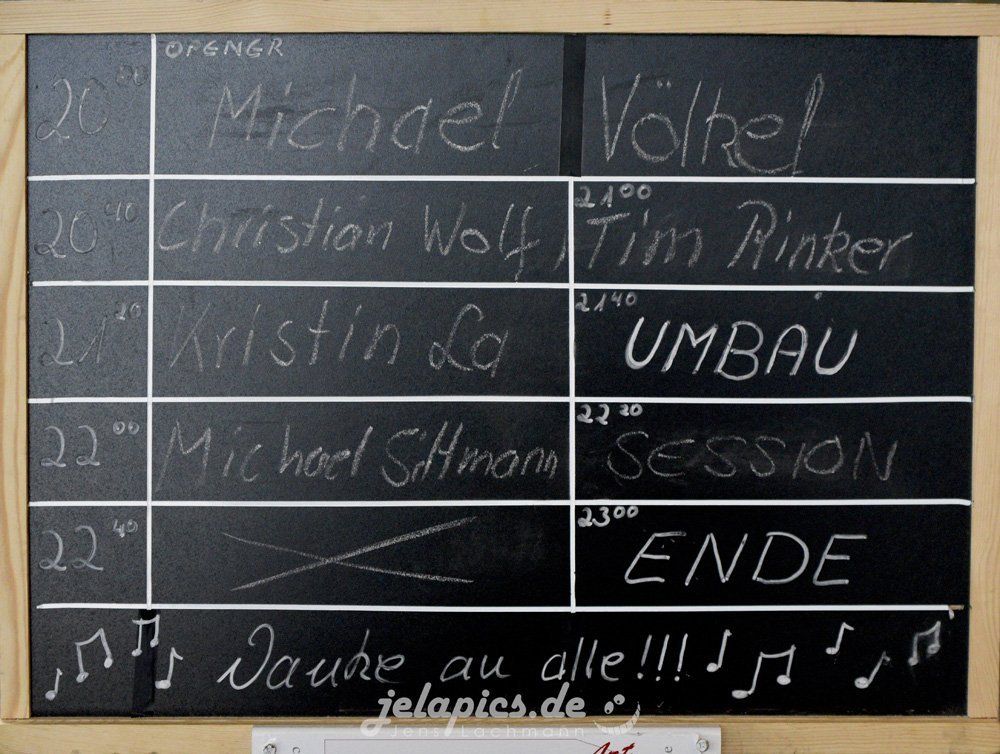 OPENER
20 00 Michael Völkel
20 40 Christian Wolf, 21 00 Tim Rinker
21 20 Kristin La 21 40 UMBAU
22 00 Michael Sittmann 22 20 SESSION
22 40 23 00 ENDE
Danke an alle!!!
jelapics.de
Jens Lachmann
Art